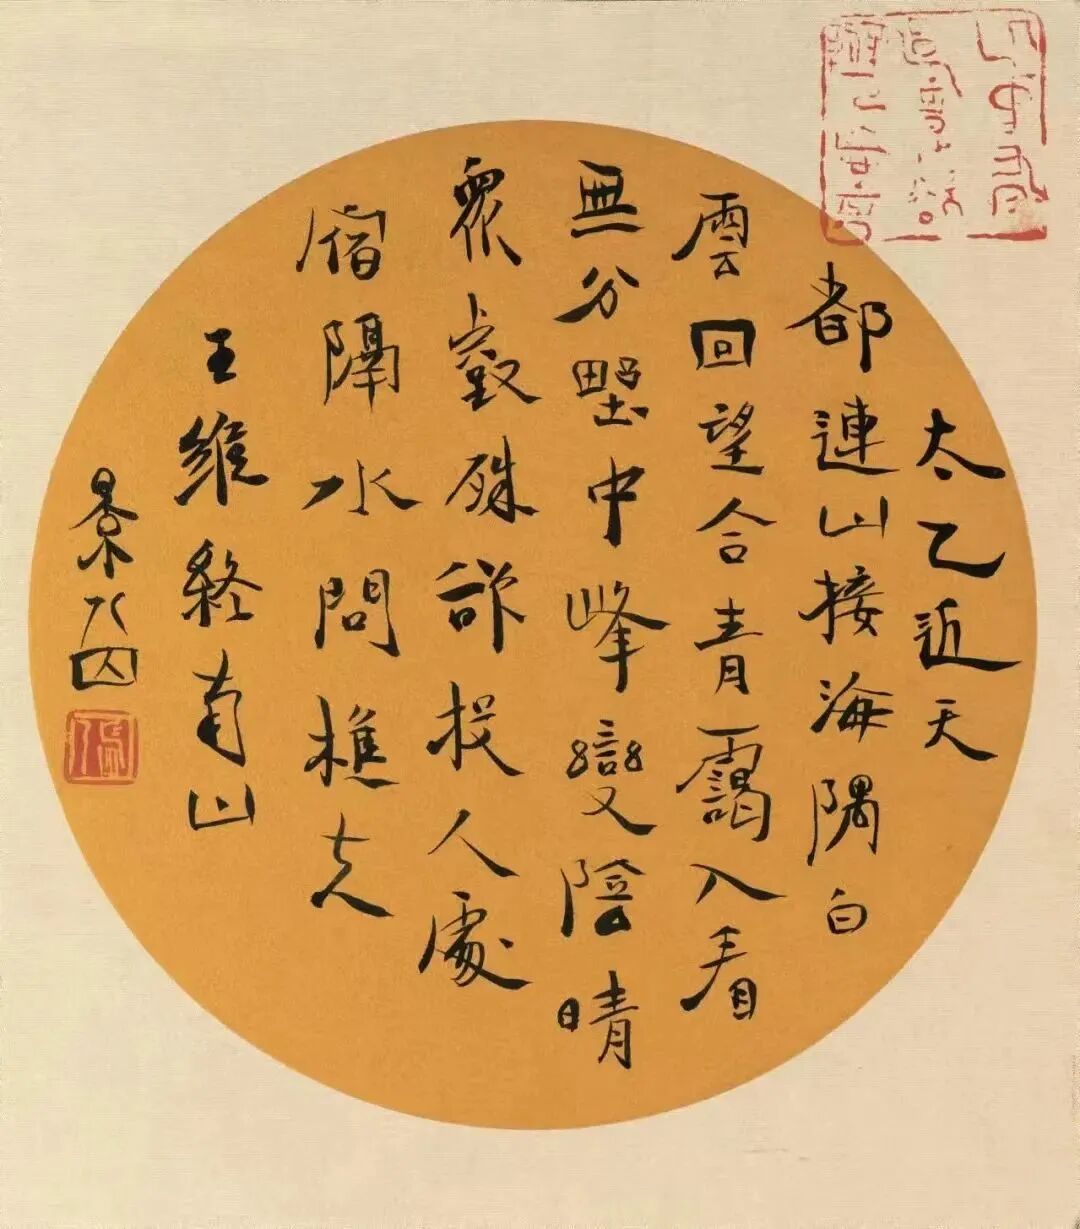 太乙近天
都連山接海隅白
雲回望合青靄入看
無分野中峰變陰晴
衆壑殊欲投人處
宿隔水問樵夫
王維終南山
景